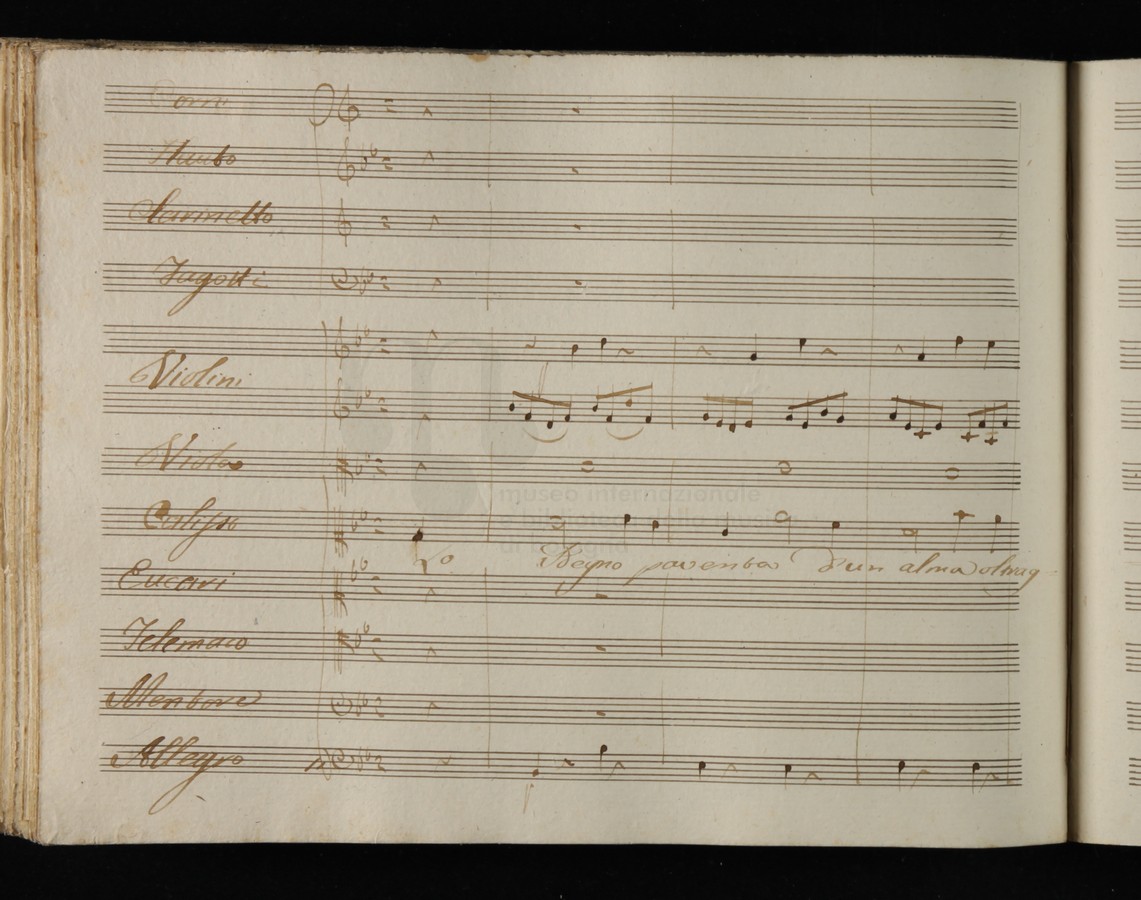 Corni
Flauto
Clarinetto
Fagotti
Violini
Viola
Calipso
Lo Degno paventa d'un alma oltrag
Eucari
Telemaco
Mentore
Allegro
museo internazionale
e biblioteca della musica
di bologna